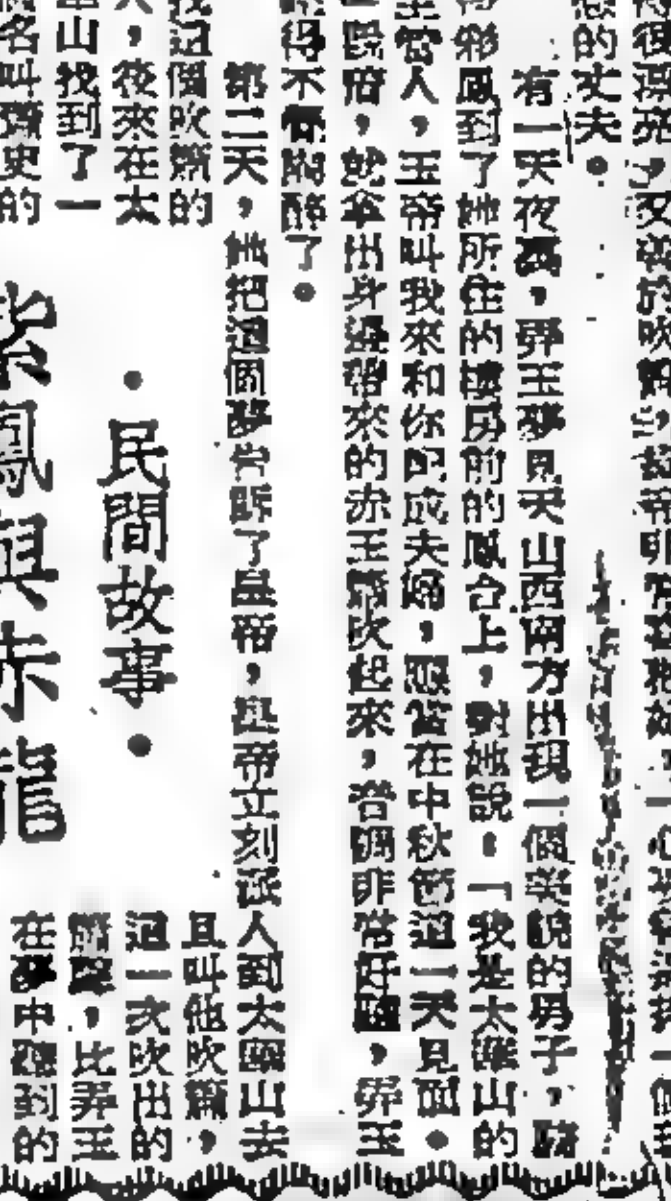 想的丈夫。
有一天夜裏，弄玉夢見天山西南方出現一個美貌的男子，騎
彩鳳到了她所住的樓房前的鳳台上，對她說：「我是太華山的
主管人，玉帝叫我來和你配成夫婦，應當在中秋節這一天見面。
，就拿出身邊帶來的赤玉簫吹起來，音調非常好聽，弄玉
得不
醉了。
第二天，她把這個夢告訴了皇帝，皇帝立刻派人到太華山去
找這個吹簫的
人，後來在太
華山找到了一
個名叫簫史的
•民間故事•
紫鳳與赤龍
且叫他吹簫，
這一次吹出的
簫聲，比弄玉
在夢中聽到的